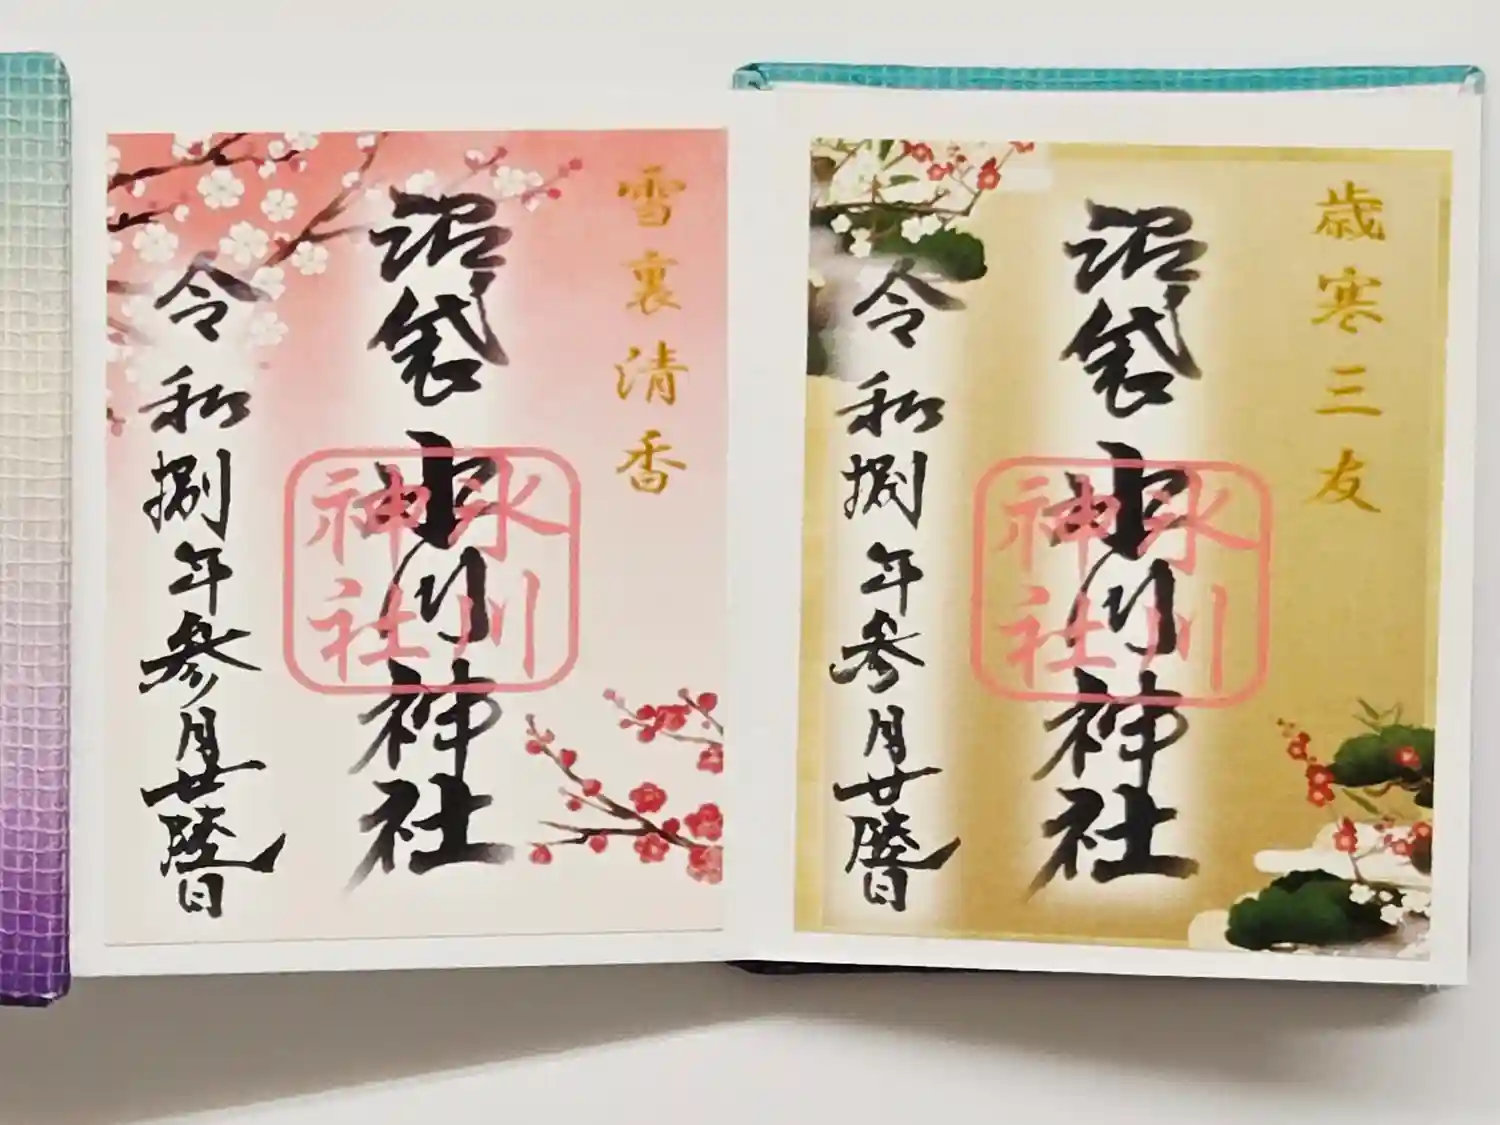 歳寒三友
沼袋氷川神社
氷川
神社
令和捌年参月廿陸日
雪裏清香
沼袋氷川神社
氷川
神社
令和捌年参月廿陸日